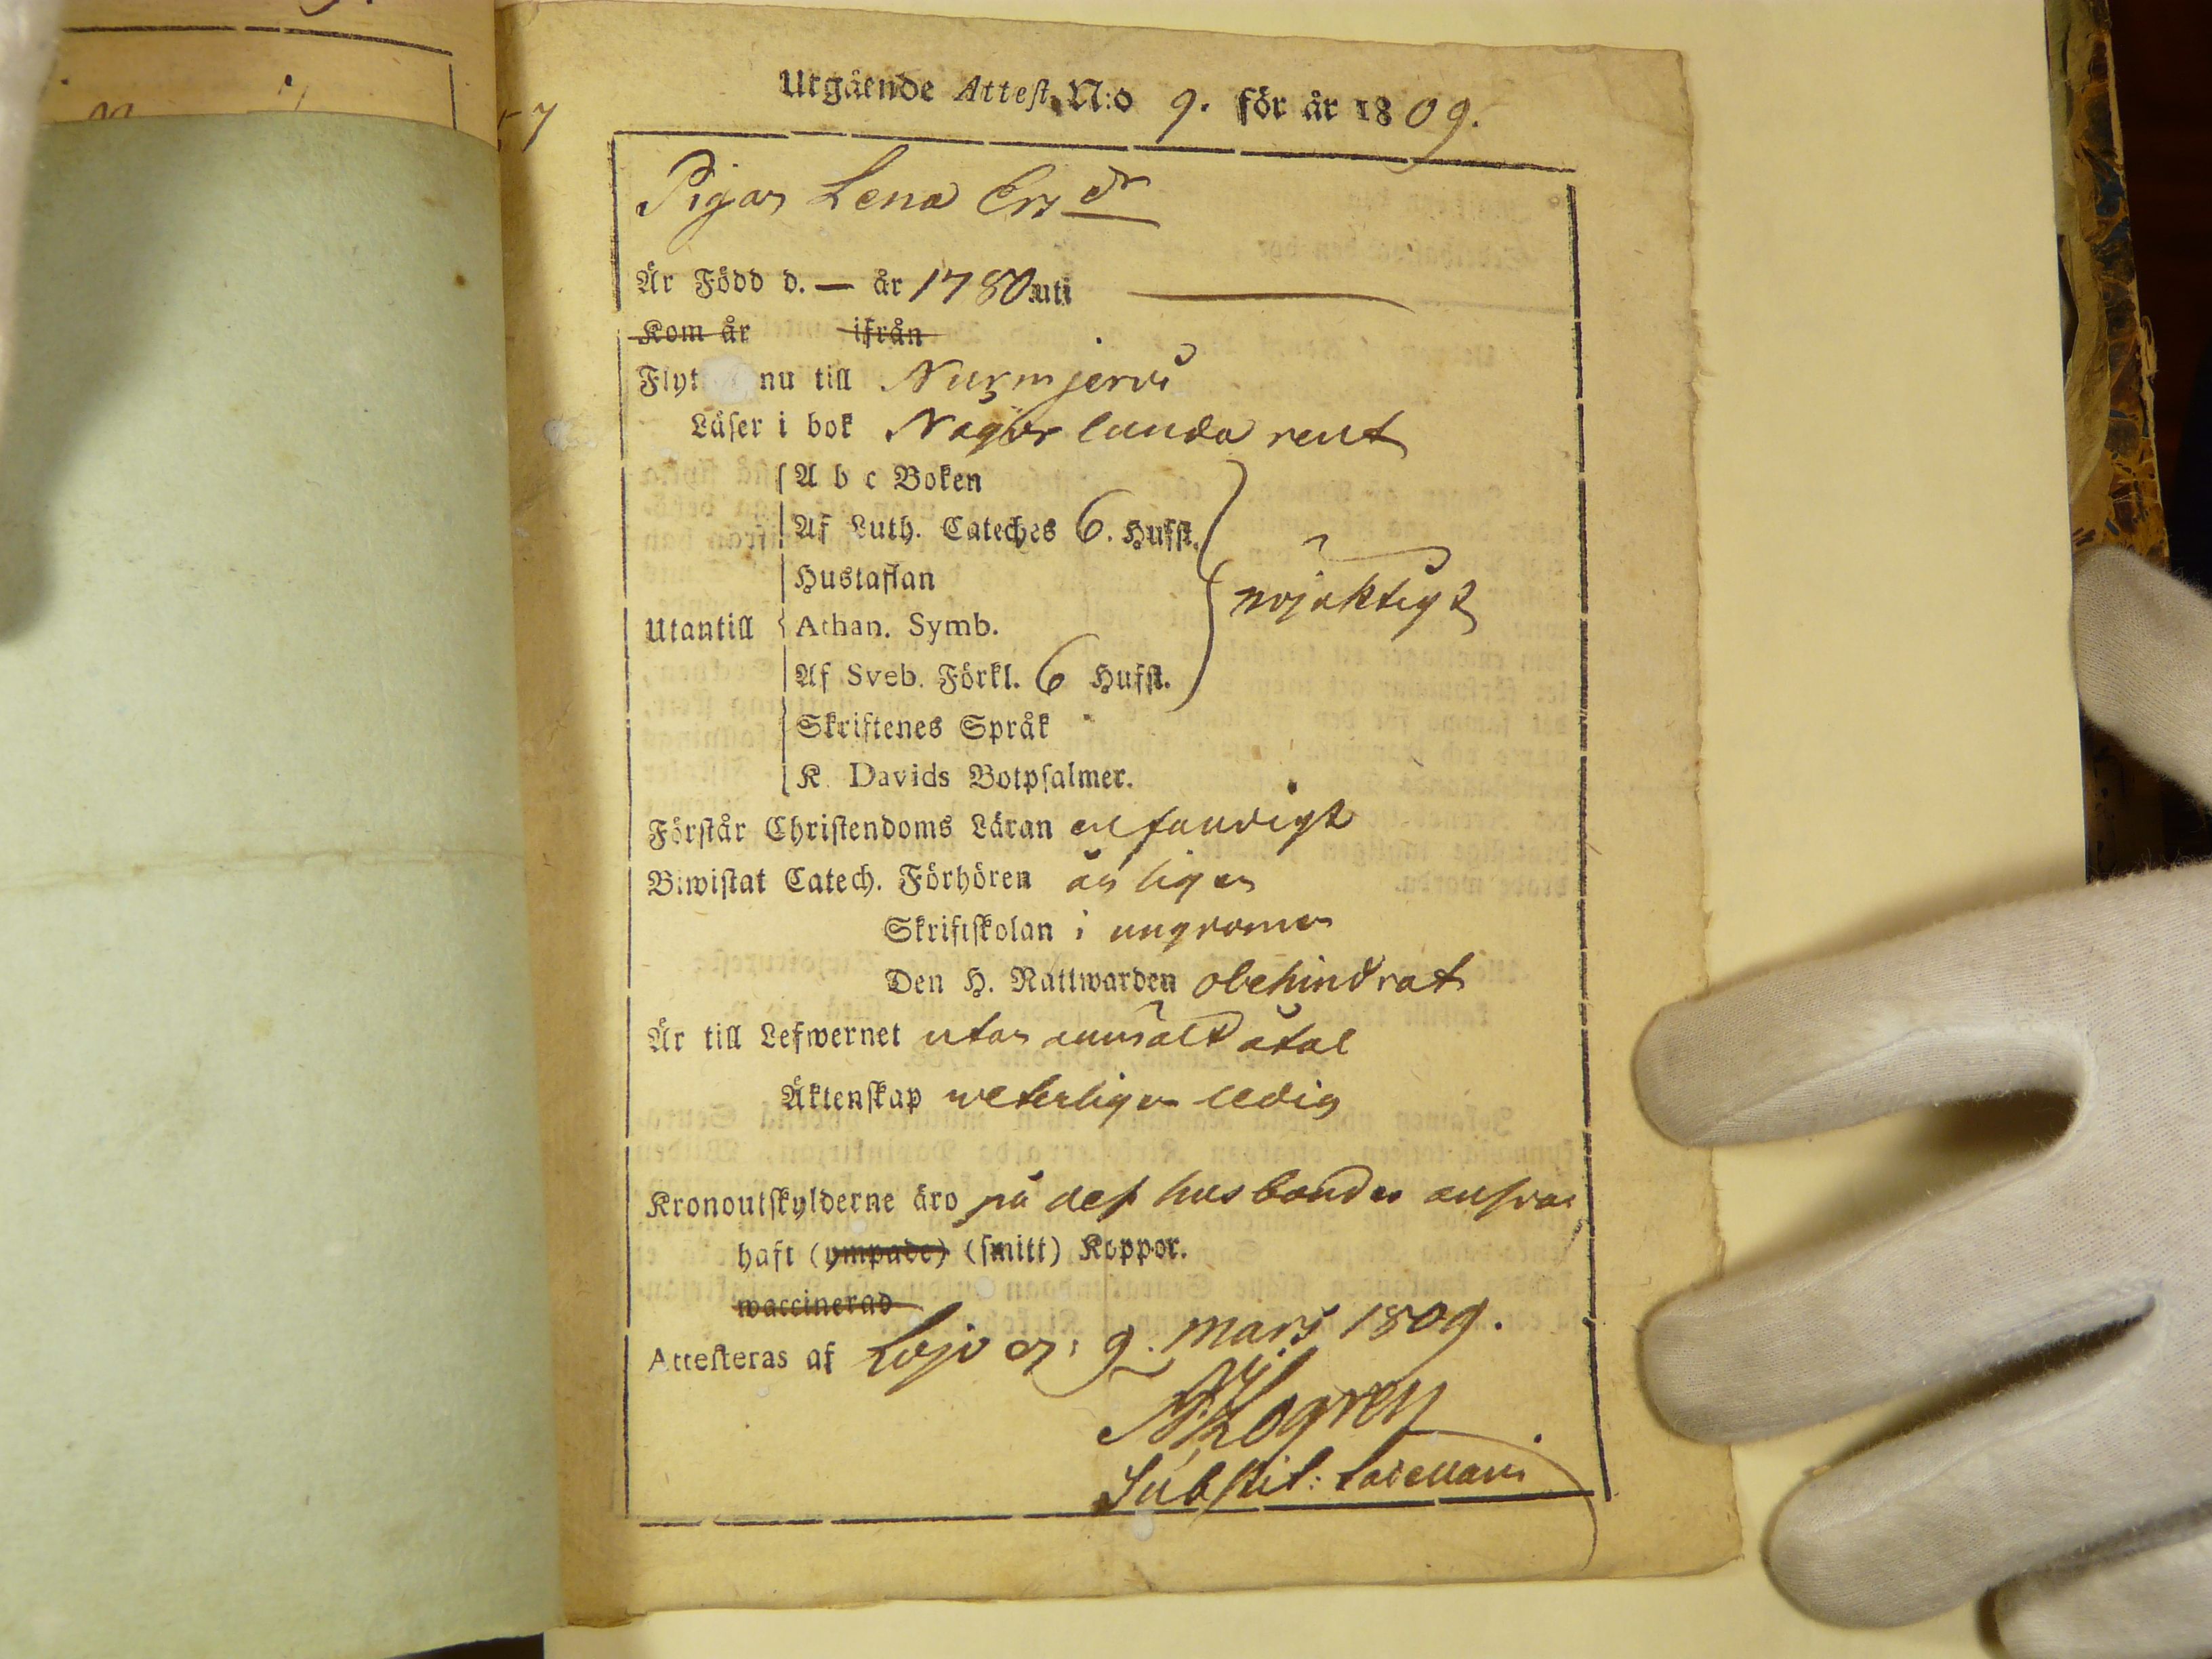 Utgående Attest. N:o 9. för år 1809.
Pigan Lena Ersdr
Är Född d. — år 1780 uti —
Kom år ifrån
Flyt nu till Nurmjervi
Läser i bok Någorlunda rent
A b c Boken
Af Luth. Cateches 6. Hufst.
Hustaflan
nöjaktigt
Utantill Athan. Symb.
Af Sveb. Förkl. 6 Hufst.
Skriftenes Språk
K. Davids Botpsalmer.
Förstår Christendoms Läran enfaudigt
Biwistat Catech. Förhören årligen
Skriftskolan i ungdomen
Den H. Nattwarden obehindrat
Är till Lefwernet utan anmält åtal
Äktenskap weterligen ledig
Kronoutskylderne äro på dess husbondes ansvar
haft (ympade) (smitt) Koppor.
waccinerad
Attesteras af Lojo d. 9. Mars 1809.
Substit: Sacellani